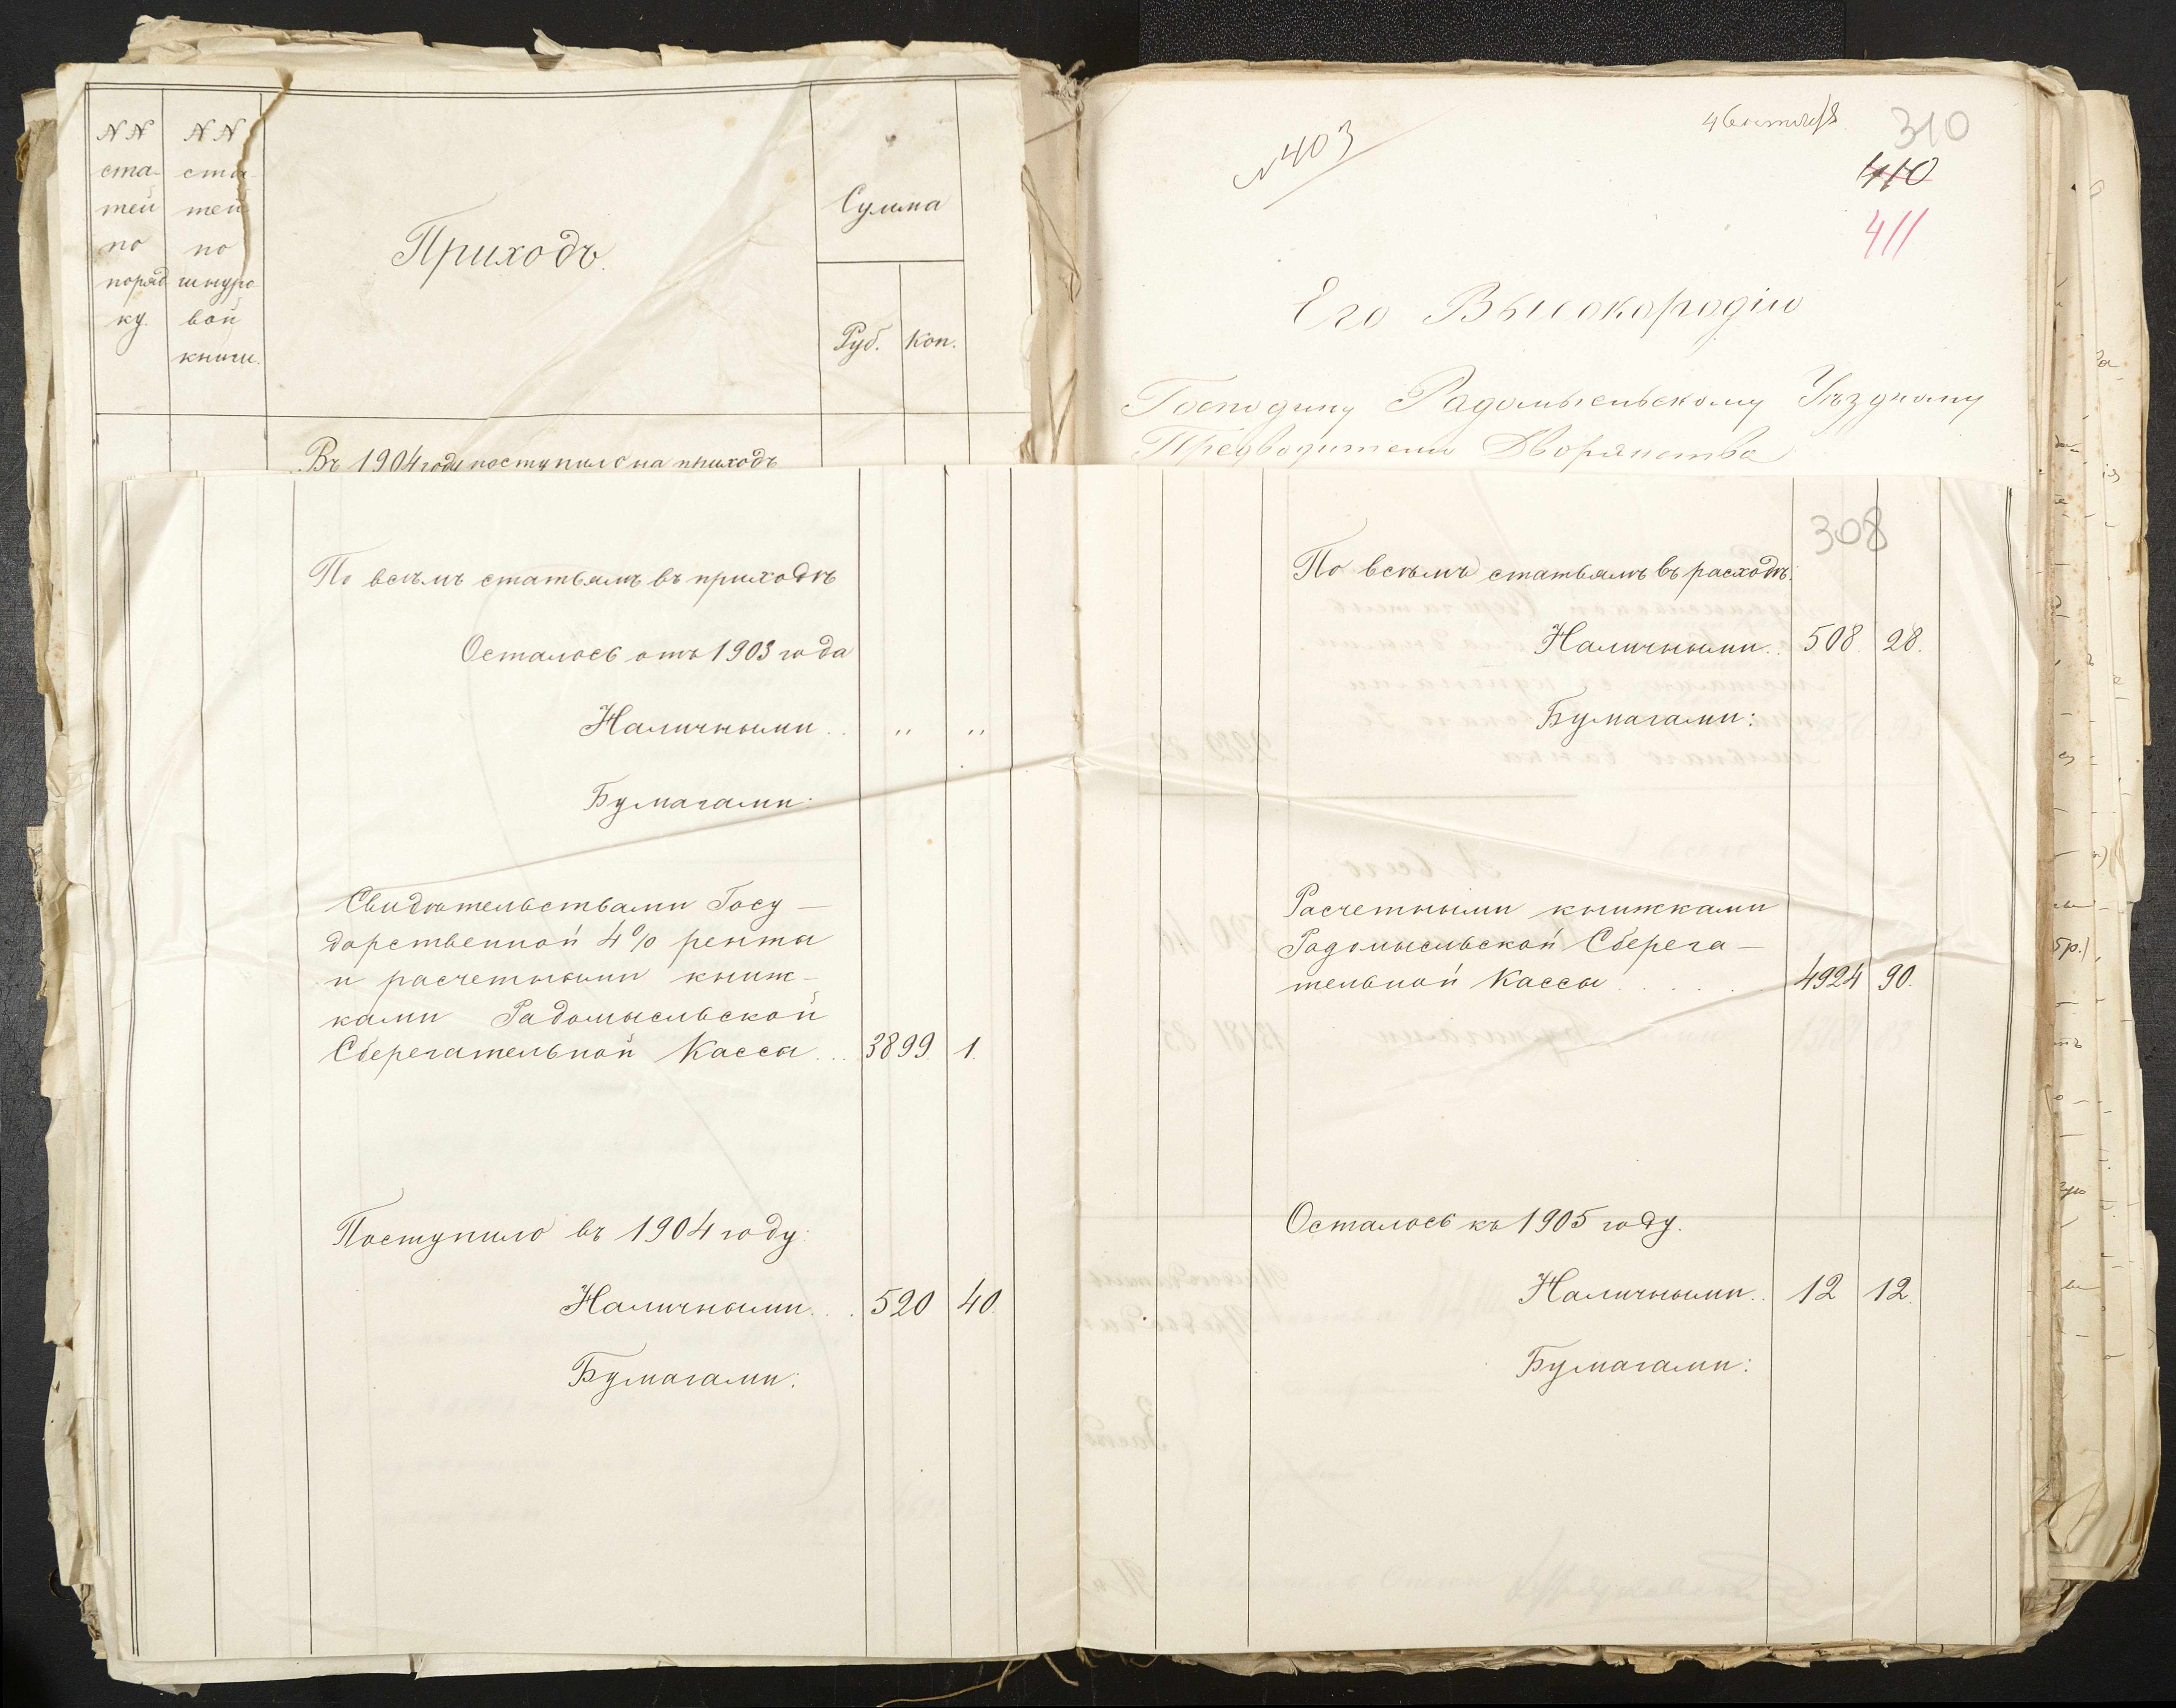 №№ ста- тей по поряд ку.
№№ ста- тей по шнуро- вой книги.
Приходъ.
Сумма
Руб. Коп.
Въ 1904 году поступило на приходъ
№ 403
310
410
411
Его Высокородію
Господину Радомысльскому Уѣздному
Предводителю Дворянства
По всѣмъ статьямъ въ приходѣ
Осталось отъ 1903 года
Наличными . . " "
Бумагами:
Свидѣтельствами Госу-
дарственной 4% ренты
и расчетными книж-
ками Радомысльской
Сберегательной Кассы . . . 3899. 1.
Поступило въ 1904 году:
Наличными . . . 520 40.
Бумагами:
308
По всѣмъ статьямъ въ расходѣ:
Наличными . . 508. 28.
Бумагами:
Расчетными книжками
Радомысльской Сберега-
тельной Кассы . . . . . 4924 90.
Осталось къ 1905 году.
Наличными . . 12 12.
Бумагами: